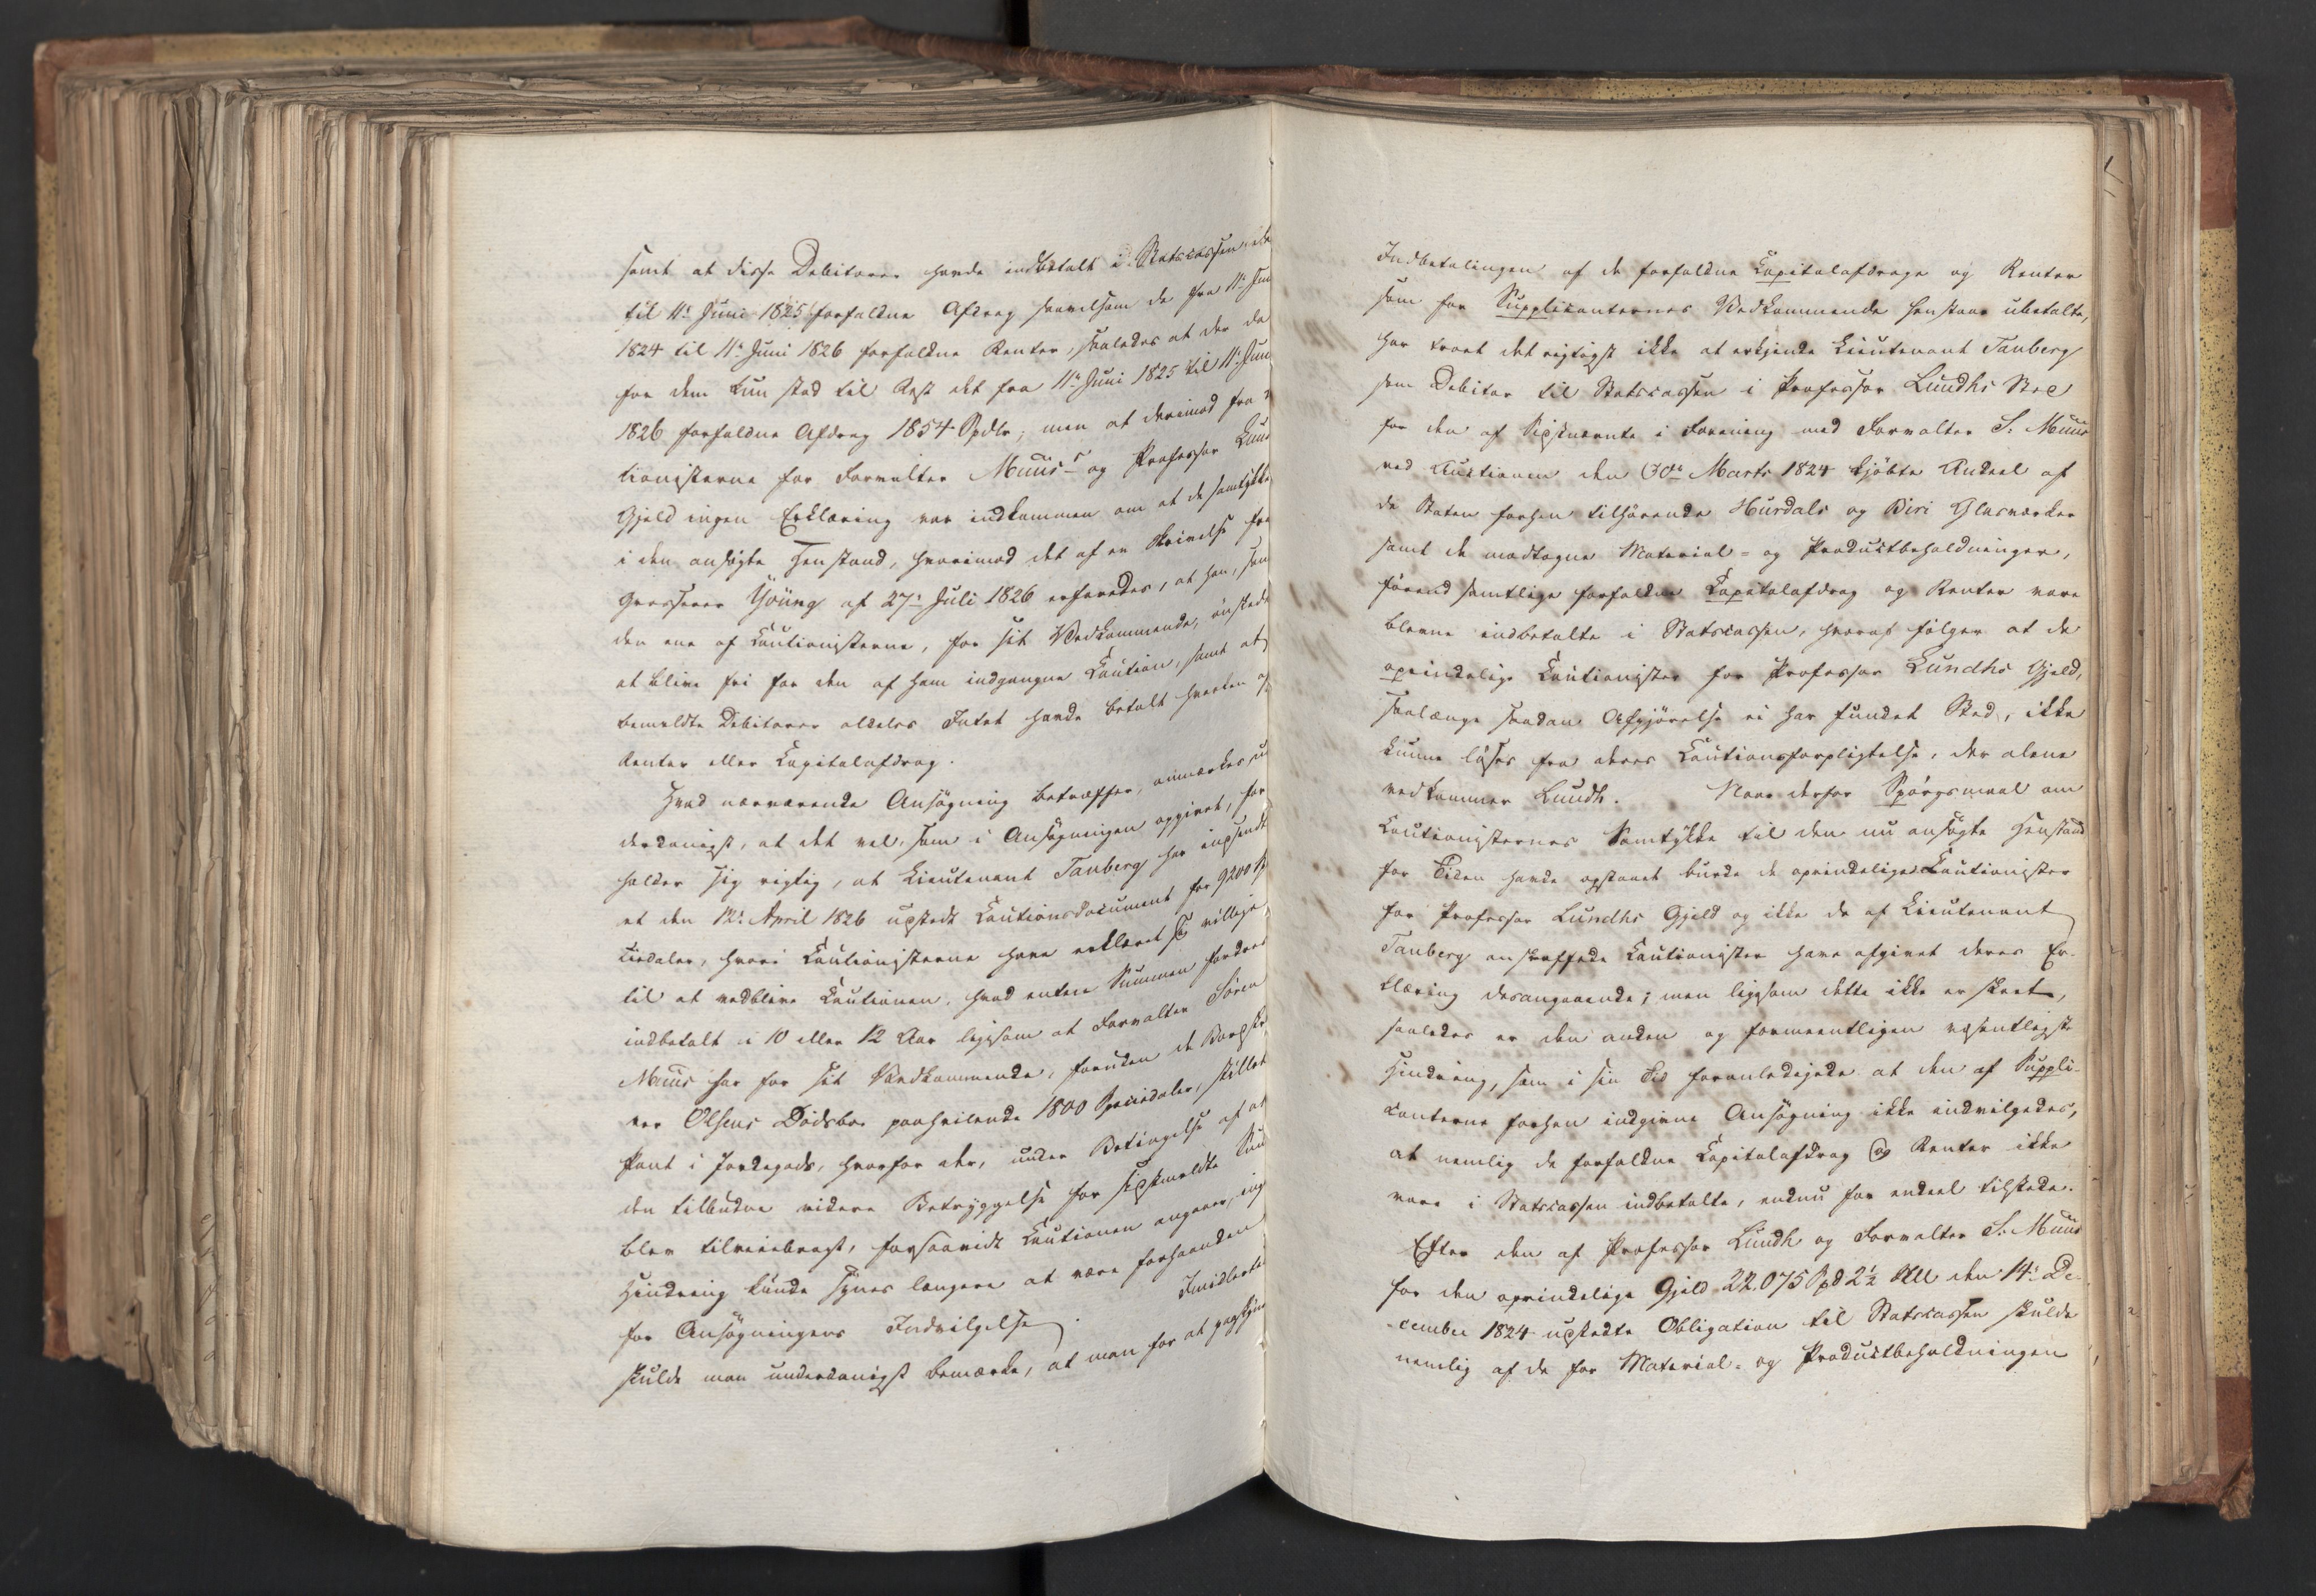 samt at disse Debitorer havde indbetalt i Statscassen
til 11te Juni 1825 forfaldne Afdrag saavelsom de fra 11te Jun
1824 til 11te Juni 1826 forfaldne Renter, saaledes at der da
for dem kun stod til Rest det fra 11te Juni 1825 til 11te Jun
1826 forfaldne Afdrag 1854 Spdlr; men at derimod fra
tionisterne for Forvalter Muus's og Professor Lund
Gjeld ingen Erklæring var indkommen om at de samtykke
i den ansøgte Henstand, hvorimod det af en Skrivelse fra
Grosserer Young af 27de Juli 1826 erfaredes, at han, som
den ene af Cautionisterne, for sit Vedkommende, ønskede
at blive fri for den af ham indgangne Caution, samt at
bemeldte Debitorer aldeles Intet havde betalt hverken af
Renter eller Capitalafdrag.
Hvad nærværende Ansøgning betræffer, anmærkes un
derdanigst, at det vel, som i Ansøgningen opgivet, for
holder sig rigtig, at Lieutenant Tanberg har indsendt
et den 12te April 1826 udstedt Cautionsdocument for 9200 Sp
ciedaler, hvori Cautionisterne have erklæret sig villige
til at vedblive Cautionen, hvad enten Summen fordres
indbetalt i 10 eller 12 Aar ligesom at Forvalter Søren
Muus har for sit Vedkommende, foruden de
Olsens Dødsboe paahvilende 1800 Speciedaler, stillet
Pant i Jordegods, hvorfor der, under Betingelse af at
den tilbudne videre Betryggelse for sidstmeldte Sum
blev tilveiebragt, forsaavidt Cautionen angaaer, ing
Hindring kunde synes længere at være forhaanden
for Ansøgningens Indvilgelse. Imidlerti
skulde man underdanigst bemærke, at man for at
Indbetalingen af de forfaldne Capitalafdrage og Renter
som for Supplicanternes Vedkommende henstaae ubetalte,
har troet det rigtigst ikke at erkjende Lieutenant Tanberg
som Debitor til Statscassen i Professor Lundhs Sted
for den af Sidstnævnte i Forening med Forvalter S. Muus
ved Auctionen den 30te Marts 1824 kjøbte Andeel af
de Staten forhen tilhørende Hurdals og Biri Glasværker
samt de modtagne Material- og Productbeholdninger,
førend samtlige forfaldne Capitalafdrag og Renter vare
blevne indbetalte i Statscassen, hvoraf følger at de
oprindelige Cautionister for Professor Lundhs Gjeld,
saalænge saadan Afgjørelse ei har fundet Sted, ikke
kunne løses fra deres Cautionsforpligtelse, der alene
vedkommer Lundh. Naar derfor Spørgsmaal om
Cautionisternes Samtykke til den nu ansøgte Henstand
for Tiden havde opstaaet burde de oprindelige Cautionister
for Professor Lundhs Gjeld og ikke de af Lieutenant
Tanberg anskaffede Cautionister have afgivet deres Er-
klæring desangaaende; men ligesom dette ikke er skeet,
saaledes er den anden og formeentligen væsentligste
Hindring, som i sin Tid foranledigede at den af Suppli-
canterne forhen indgivne Ansøgning ikke indvilgedes,
at nemlig de forfaldne Capitalafdrag og Renter ikke
vare i Statscassen indbetalte, endnu for endeel tilstede.
Efter den af Professor Lundh og Forvalter S. Muus
for den oprindelige Gjeld 22,075 Spd 2½ den 14de De-
cember 1824 udstedte Obligation til Statscassen skulde
nemlig af de for Material- og Productbeholdningen